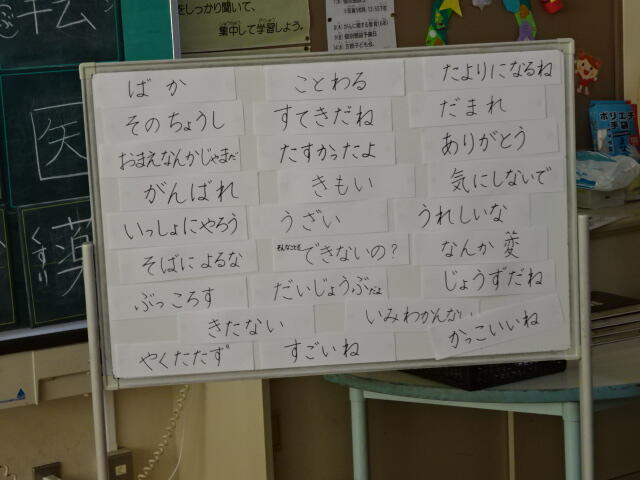 をしっかり聞いて、
集中して学習しよう。
ばか
ことわる
たよりになるね
そのちょうし
すてきだね
だまれ
おまえなんかじゃまだ
たすかったよ
ありがとう
がんばれ
きもい
気にしないで
いっしょにやろう
うざい
うれしいな
そばによるな
そんなことも できないの?
なんか変
ぶっころす
だいじょうぶだよ
じょうずだね
きたない
いみわかんない
かっこいいね
やくたたず
すごいね
医
薬
くすり
ポリエチ
手袋